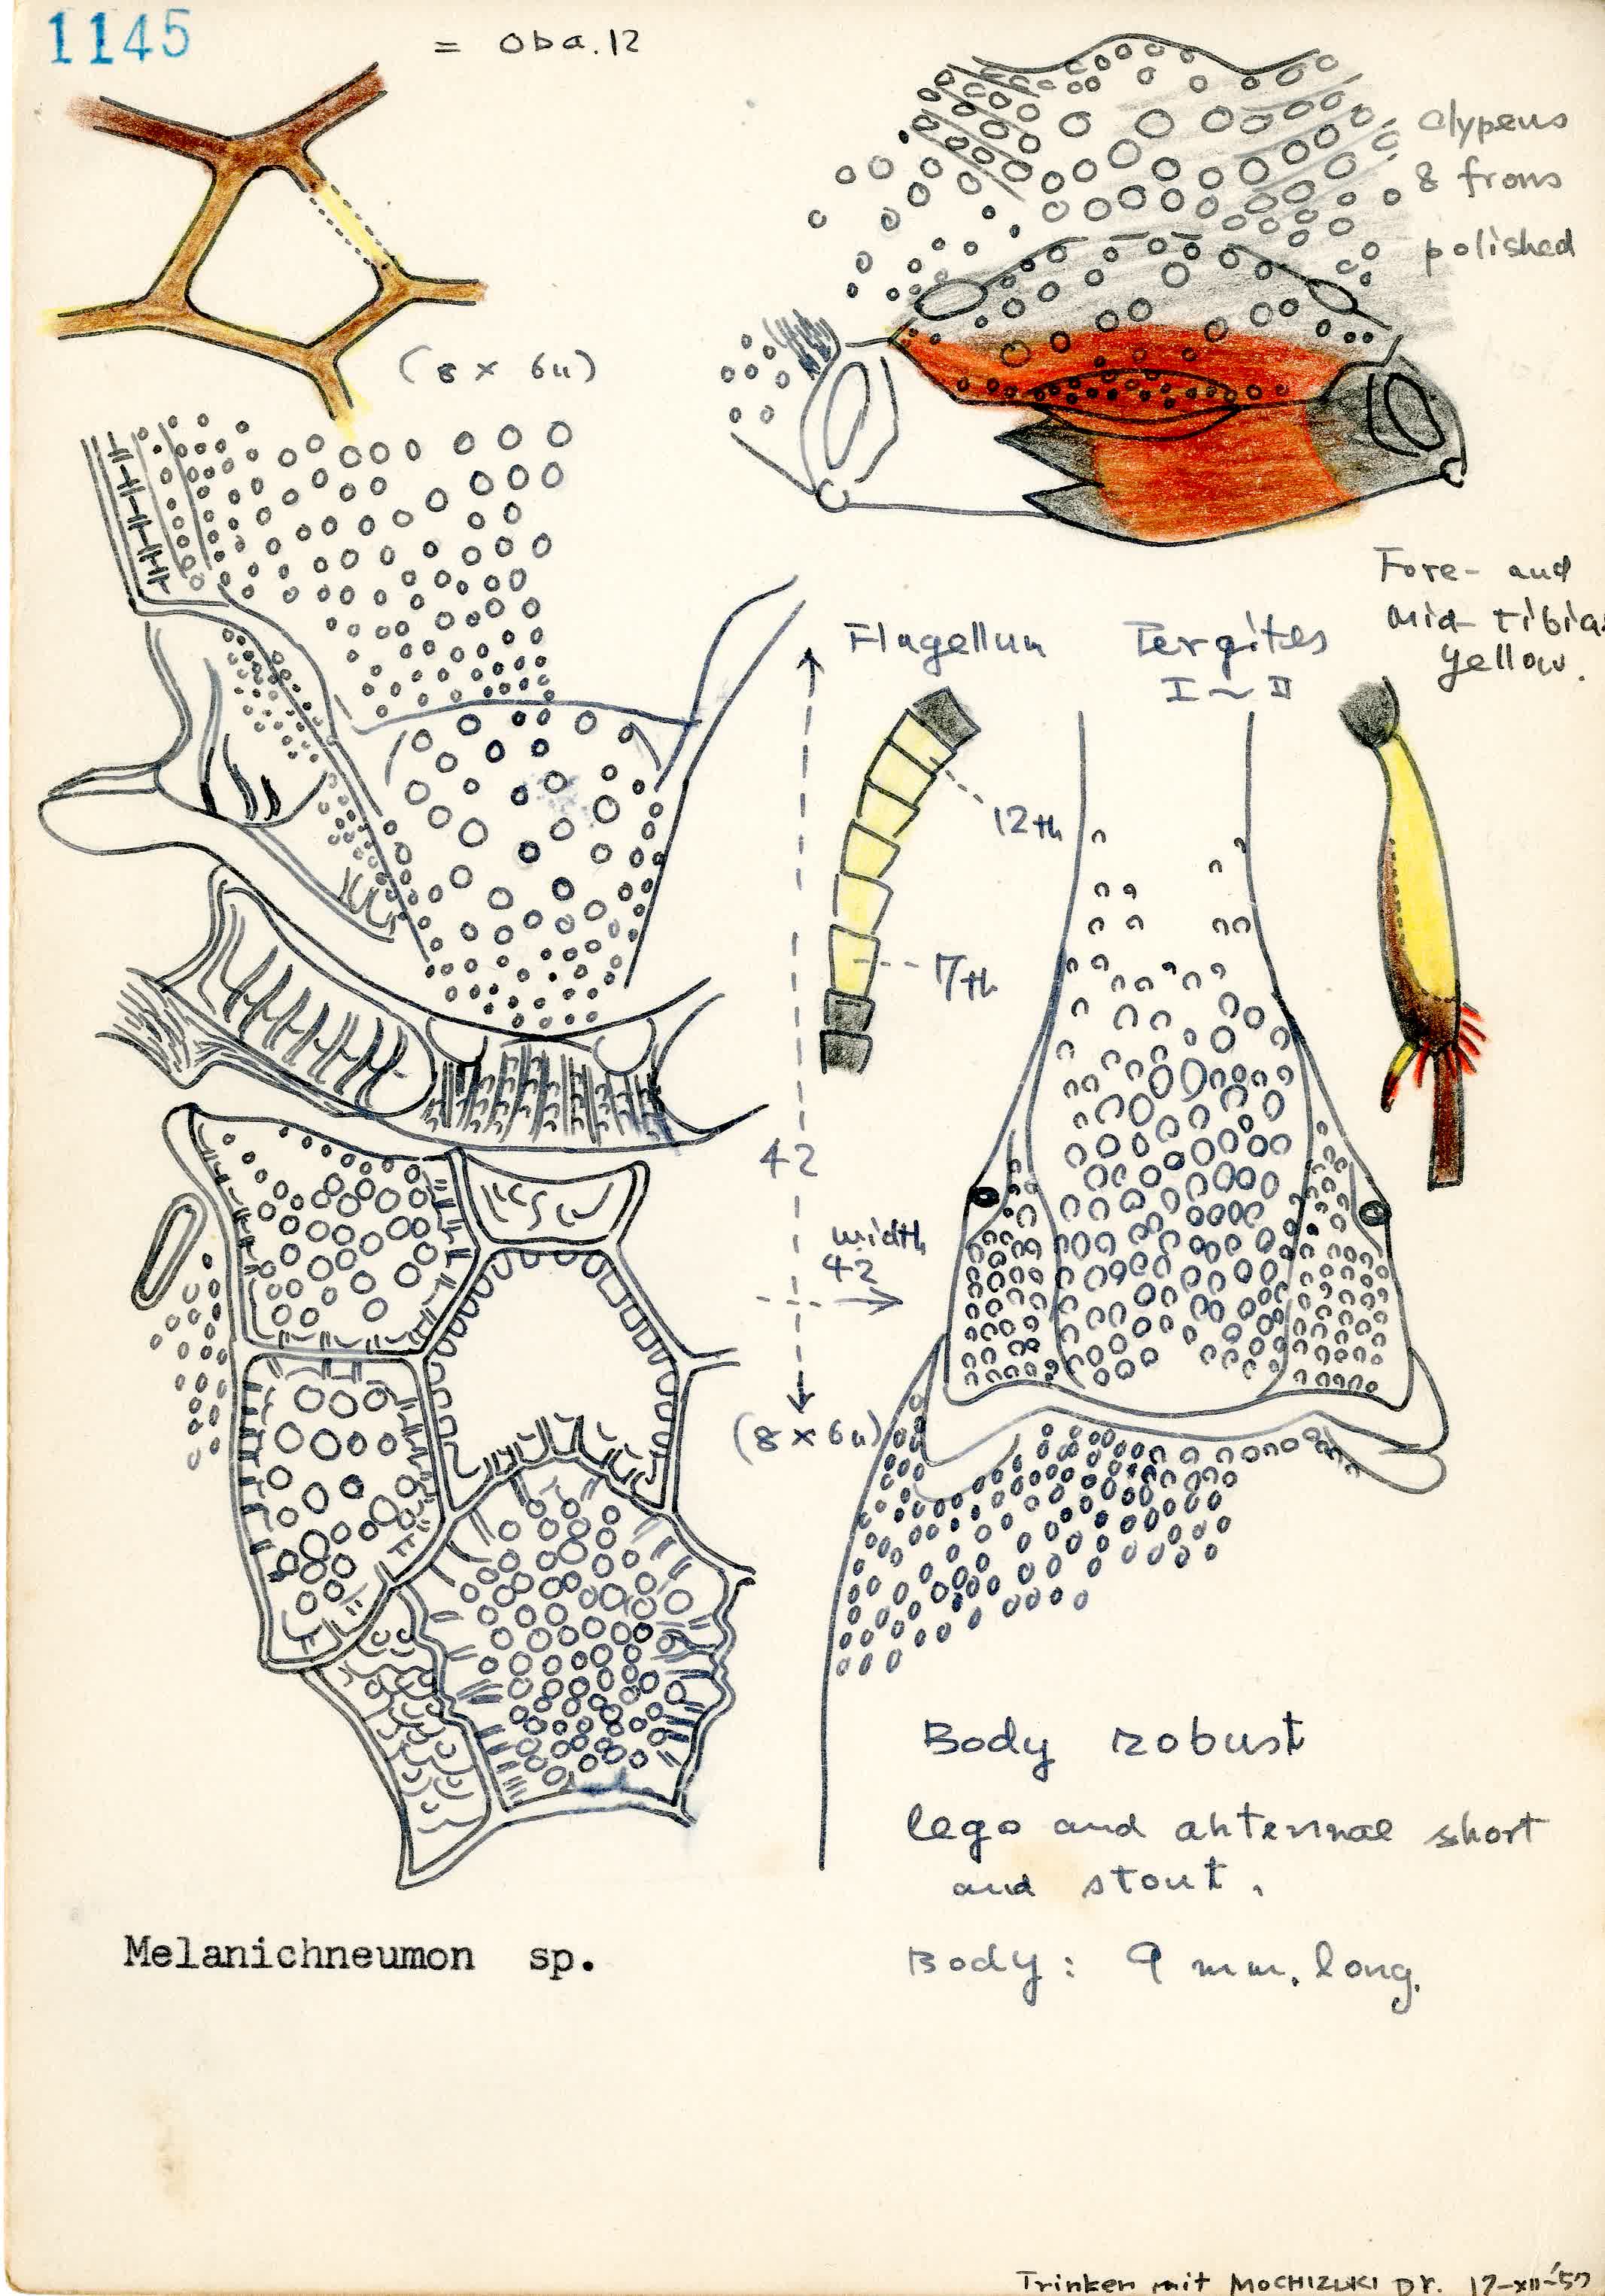 1145
= Oba.12
clypeus
& frons
polished
(8 x 6u)
Fore- and
Mid tibia
Yellow.
Flagellum
Tergites
I ~ II
12th
7th
42
width
42
(8 x 6u)
Body robust
legs and antennae short
and stout.
Melanichneumon sp.
Body: 9 mm. long.
Trinken mit MOCHIZUKI Dr.